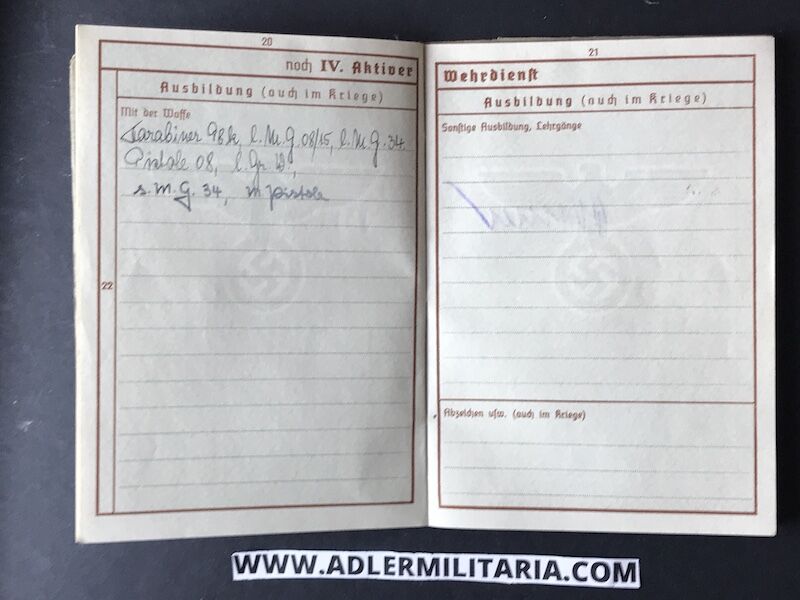 20
noch IV. Aktiver
Ausbildung (auch im Kriege)
Mit der Waffe
Karabiner 98k, l.M.G. 08/15, l.M.G. 34
Pistole 08, l.Gr.W,
s.M.G. 34, m Pistole
22
21
Wehrdienst
Ausbildung (auch im Kriege)
Sonstige Ausbildung, Lehrgänge
Abzeichen usw. (auch im Kriege)
WWW.ADLERMILITARIA.COM